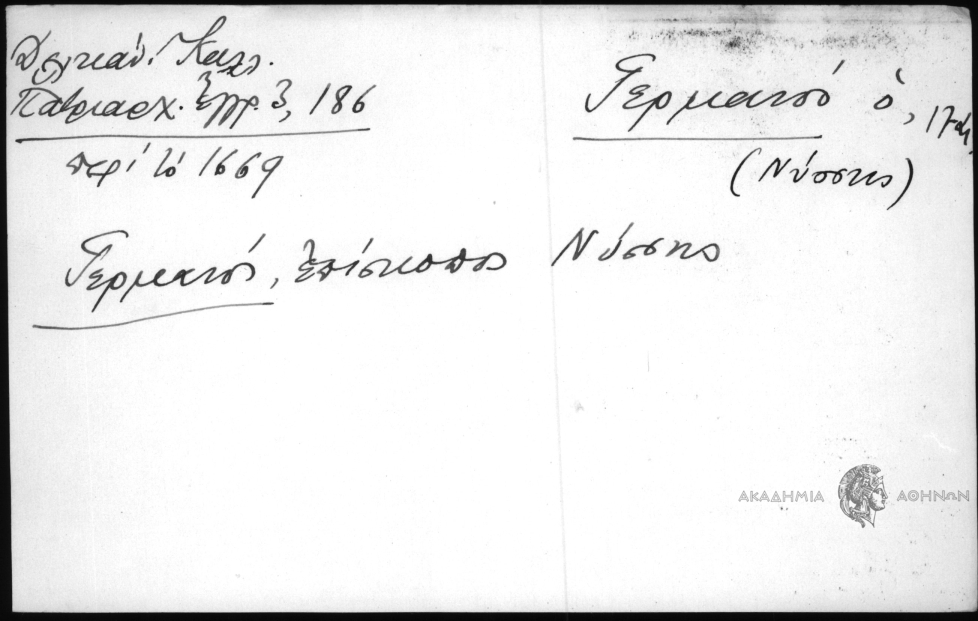 Δελικάν. Κατάλ.
Πατριαρχ. Ἐγγρ. 3, 186
περὶ τὸ 1669
Γερμανοῦ ὁ, 17 αἰ.
(Νύσσης)
Γερμανός, ἐπίσκοπος Νύσσης
ΑΚΑΔΗΜΙΑ ΑΘΗΝΩΝ